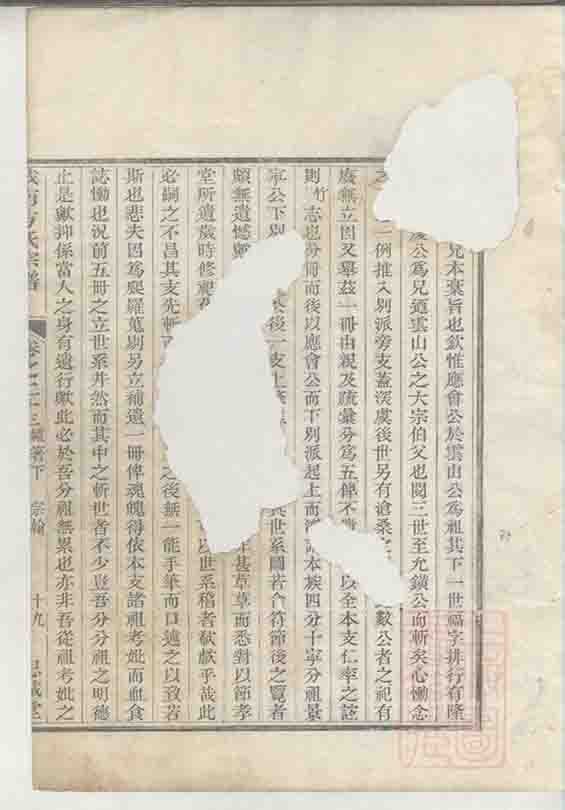 兄本棄旨也欽惟應會公於雲山公為祖其下一世福字排行有隆
慶公為兄迺雲山公之大宗伯父也閱三世至允鑌公而斬矣心慟念
之 一例推入別派旁支蓋深虞後世另有滄桑之 數公者之祀有
廢無立因又舉茲一冊由親及疏彙分為五俾不 以全本支仁率之誼
則竹志也分冊而後以應會公而下別派起上而 本族四分十寧分祖景
寧公下別 後一支上 世系圖若合符節後之覽者
頗無遺憾 甚草草而悉對以節孝
堂所遺歲時修 以世系稽者猷獻乎哉此
必嗣之不昌其支先斬 之後無一能手筆而口述之以致若
斯也悲夫因為爬羅蒐剔另立補遺一冊俾魂魄得依本支諸祖考妣而血食
誌慟也況前五冊之立世系井然而其中之斬世者不少豈吾分分祖之明德
止是歟抑係當人之身有遺行歟此必於吾分祖無累也亦非吾從祖考妣之
方氏宗譜 卷之二十三 雜著下 宗翰 十九